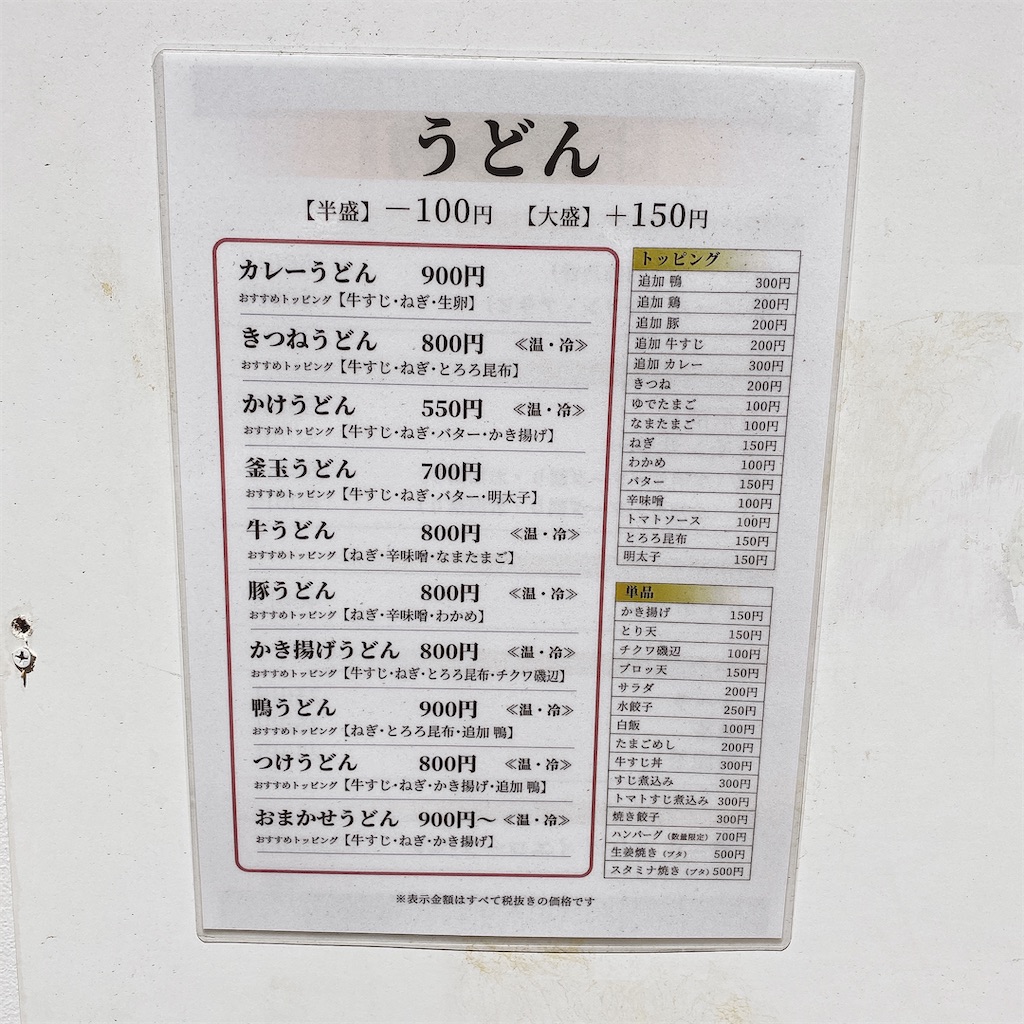 うどん
【半盛】－100円 【大盛】＋150円
カレーうどん 900円
おすすめトッピング【牛すじ・ねぎ・生卵】
きつねうどん 800円 ≪温・冷≫
おすすめトッピング【牛すじ・ねぎ・とろろ昆布】
かけうどん 550円 ≪温・冷≫
おすすめトッピング【牛すじ・ねぎ・バター・かき揚げ】
釜玉うどん 700円
おすすめトッピング【牛すじ・ねぎ・バター・明太子】
牛うどん 800円 ≪温・冷≫
おすすめトッピング【ねぎ・辛味噌・なまたまご】
豚うどん 800円 ≪温・冷≫
おすすめトッピング【ねぎ・辛味噌・わかめ】
かき揚げうどん 800円 ≪温・冷≫
おすすめトッピング【牛すじ・ねぎ・とろろ昆布・チクワ磯辺】
鴨うどん 900円 ≪温・冷≫
おすすめトッピング【ねぎ・とろろ昆布・追加 鴨】
つけうどん 800円 ≪温・冷≫
おすすめトッピング【牛すじ・ねぎ・かき揚げ・追加 鴨】
おまかせうどん 900円～ ≪温・冷≫
おすすめトッピング【牛すじ・ねぎ・かき揚げ】
トッピング
追加 鴨 300円
追加 鶏 200円
追加 豚 200円
追加 牛すじ 200円
追加 カレー 300円
きつね 200円
ゆでたまご 100円
なまたまご 100円
ねぎ 150円
わかめ 100円
バター 150円
辛味噌 100円
トマトソース 100円
とろろ昆布 150円
明太子 150円
単品
かき揚げ 150円
とり天 150円
チクワ磯辺 100円
ブロッ天 150円
サラダ 200円
水餃子 250円
白飯 100円
たまごめし 200円
牛すじ丼 300円
すじ煮込み 300円
トマトすじ煮込み 300円
焼き餃子 300円
ハンバーグ（数量限定） 700円
生姜焼き（ブタ） 500円
スタミナ焼き（ブタ） 500円
※表示金額はすべて税抜きの価格です